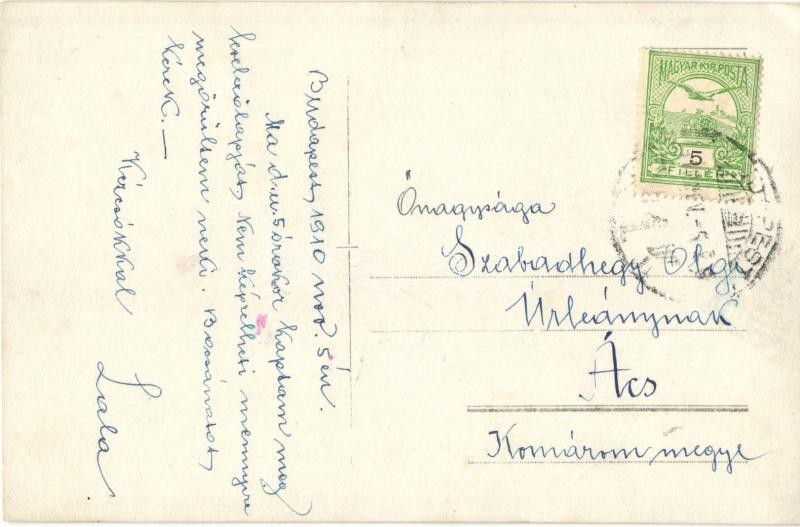 Budapest, 1910 nov. 5én.
Ma d.u. 5 órakor kaptam meg
levelezőlapját, nem képzelheti mennyire
megörültem neki. Bocsánatot,
kérek. —
Kézcsókkal
Lala
MAGYAR KIR. POSTA
5
FILLÉR
Önagysága
Szabadhegy Olga
Úrleánynak
Ács
Komárom megye